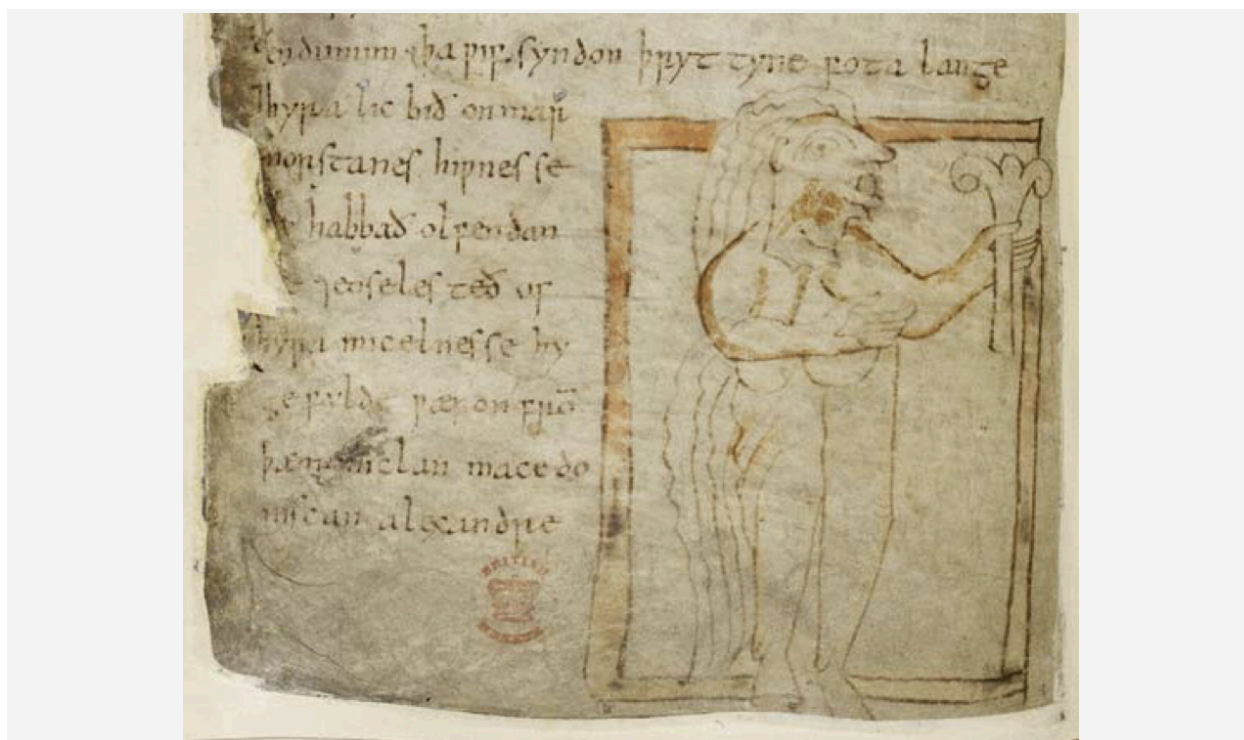 þa ƿif syndon þryttyne fota lange
⁊hyra lic bið on mar
morstanes hiƿnesse
habbað olfendan
⁊eoseles teð of
hyra micelnesse hy
gefylde ƿæron frō
þæm miclan macedo
niscan alexandre